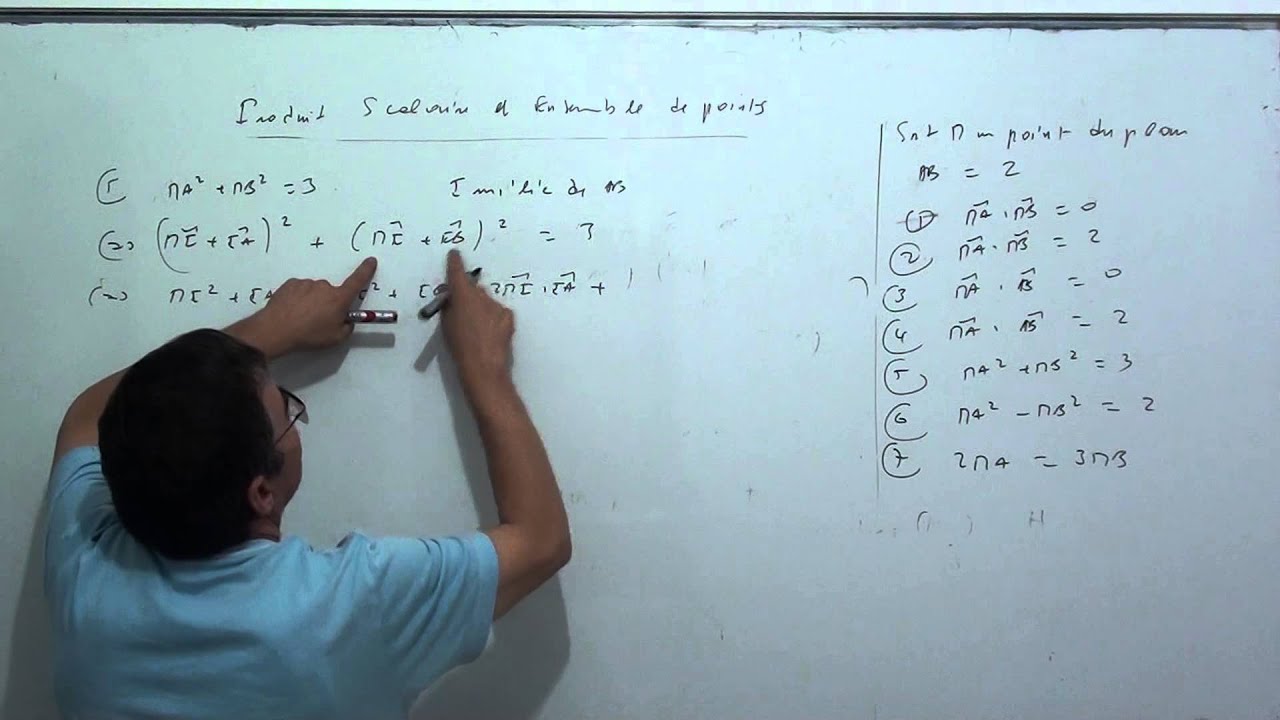 Produit Scalaire et Ensemble de points
⑤ MA² + MB² = 3 I milieu de AB
⇔ (MI⃗ + IA⃗)² + (MI⃗ + IB⃗)² = 3
⇔ MI² + IA² + 2MI⃗ . IA⃗ +
Soit M un point du plan
AB = 2
① MA⃗ . MB⃗ = 0
② MA⃗ . MB⃗ = 2
③ MA⃗ . AB⃗ = 0
④ MA⃗ . AB⃗ = 2
⑤ MA² + MB² = 3
⑥ MA² - MB² = 2
⑦ 2MA = 3MB